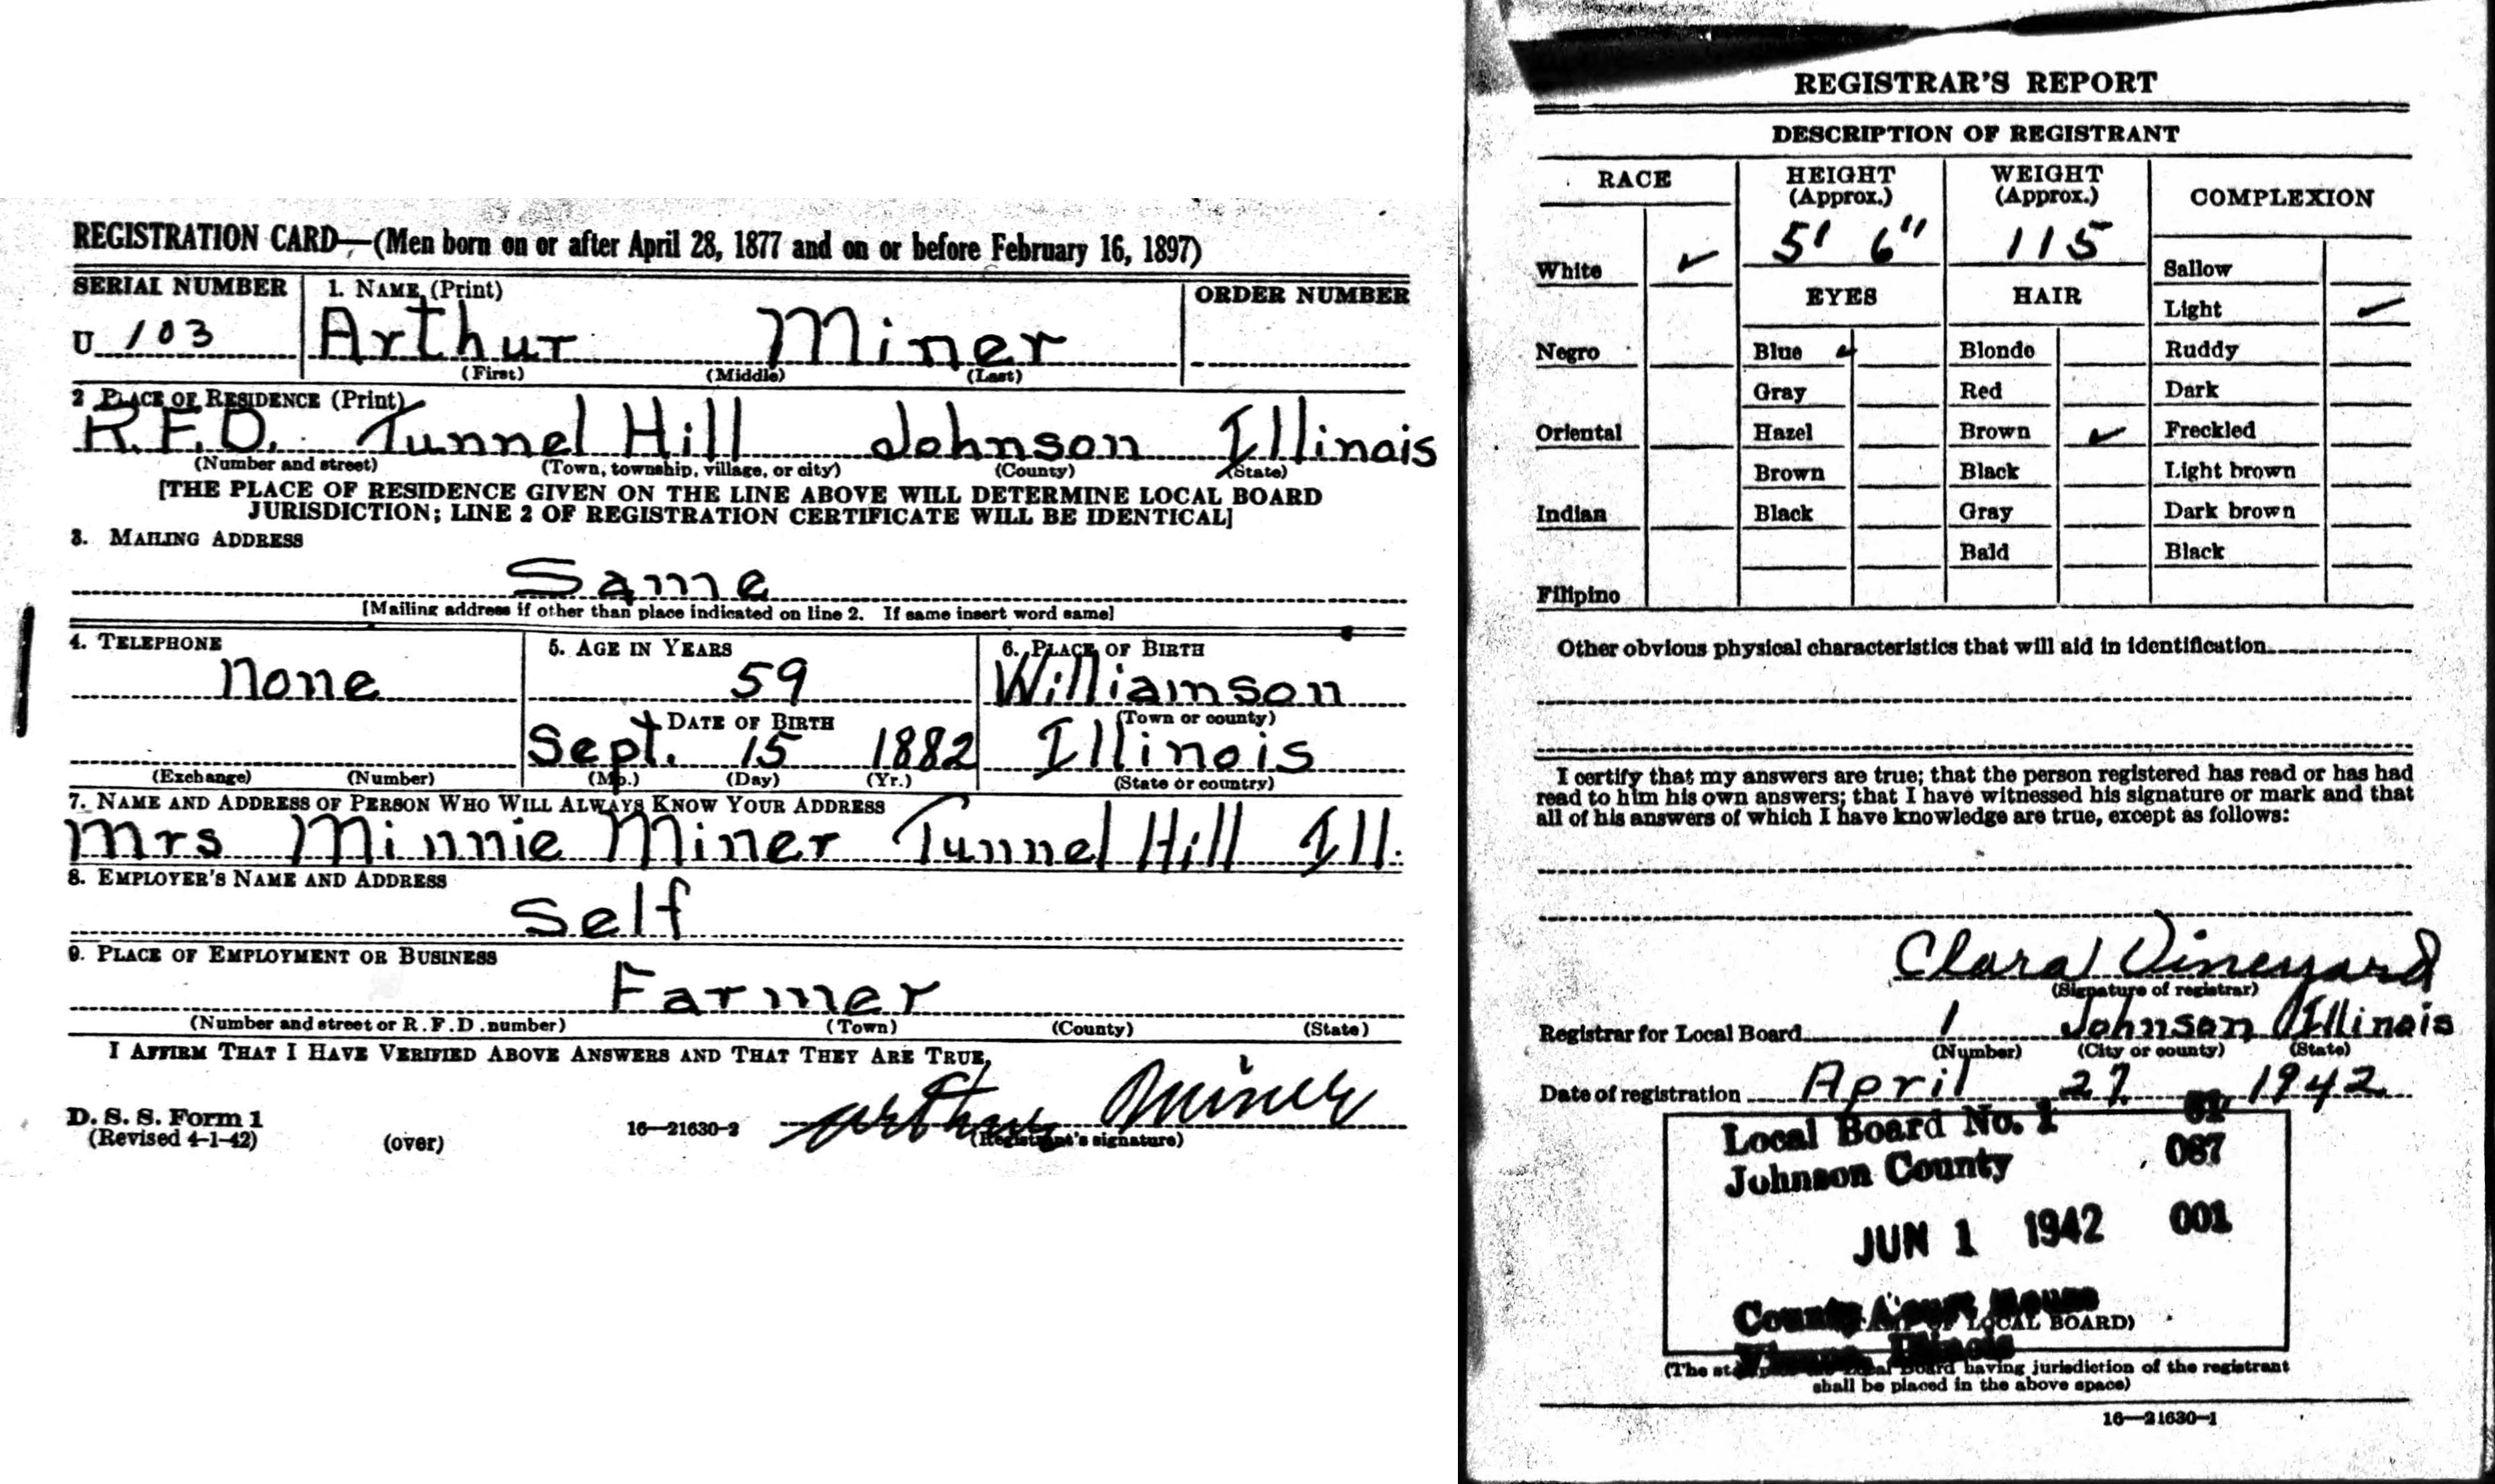 REGISTRATION CARD—(Men born on or after April 28, 1877 and on or before February 16, 1897)
SERIAL NUMBER
1. NAME (Print)
ORDER NUMBER
U 103
Arthur Miner
(First) (Middle) (Last)
2 PLACE OF RESIDENCE (Print)
R.F.D. Tunnel Hill Johnson Illinois
(Number and street) (Town, township, village, or city) (County) (State)
[THE PLACE OF RESIDENCE GIVEN ON THE LINE ABOVE WILL DETERMINE LOCAL BOARD
JURISDICTION; LINE 2 OF REGISTRATION CERTIFICATE WILL BE IDENTICAL]
3. MAILING ADDRESS
Same
[Mailing address if other than place indicated on line 2. If same insert word same]
4. TELEPHONE
None
(Exchange) (Number)
5. AGE IN YEARS
59
DATE OF BIRTH
Sept. 15 1882
(Mo.) (Day) (Yr.)
6. PLACE OF BIRTH
Williamson
(Town or county)
Illinois
(State or country)
7. NAME AND ADDRESS OF PERSON WHO WILL ALWAYS KNOW YOUR ADDRESS
Mrs Minnie Miner Tunnel Hill Ill.
8. EMPLOYER'S NAME AND ADDRESS
Self
9. PLACE OF EMPLOYMENT OR BUSINESS
Farmer
(Number and street or R.F.D. number) (Town) (County) (State)
I AFFIRM THAT I HAVE VERIFIED ABOVE ANSWERS AND THAT THEY ARE TRUE.
D. S. S. Form 1
(Revised 4-1-42)
(over)
16—21630-2
Arthur Miner
(Registrant's signature)
REGISTRAR'S REPORT
DESCRIPTION OF REGISTRANT
RACE
White ✓
Negro
Oriental
Indian
Filipino
HEIGHT
(Approx.)
5' 6"
EYES
Blue ✓
Gray
Hazel
Brown
Black
WEIGHT
(Approx.)
115
HAIR
Blonde
Red
Brown ✓
Black
Gray
Bald
COMPLEXION
Sallow
Light ✓
Ruddy
Dark
Freckled
Light brown
Dark brown
Black
Other obvious physical characteristics that will aid in identification
I certify that my answers are true; that the person registered has read or has had
read to him his own answers; that I have witnessed his signature or mark and that
all of his answers of which I have knowledge are true, except as follows:
Clara Vineyard
(Signature of registrar)
Registrar for Local Board 1 Johnson Illinois
(Number) (City or county) (State)
Date of registration April 27 1942
Local Board No. 1
Johnson County 087
JUN 1 1942 001
County Court House
LOCAL BOARD)
Illinois
(The Board having jurisdiction of the registrant
shall be placed in the above space)
16—21630-1